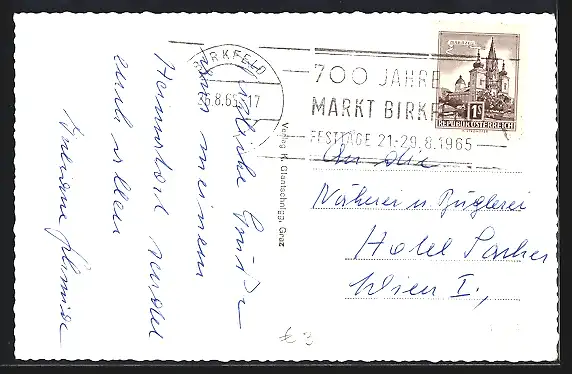 BIRKFELD
26.8.65-17
700 JAHRE
MARKT BIRKF
FESTTAGE 21-29.8.1965
MARIAZELL
1S
REPUBLIK ÖSTERREICH
Herzliche Grüße
von meinem
Heimatort sendet
euch allen
Juliane
Verlag K. Glantschnigg, Graz
An die
Näherei u Büglerei
Hotel Sacher
Wien I.,